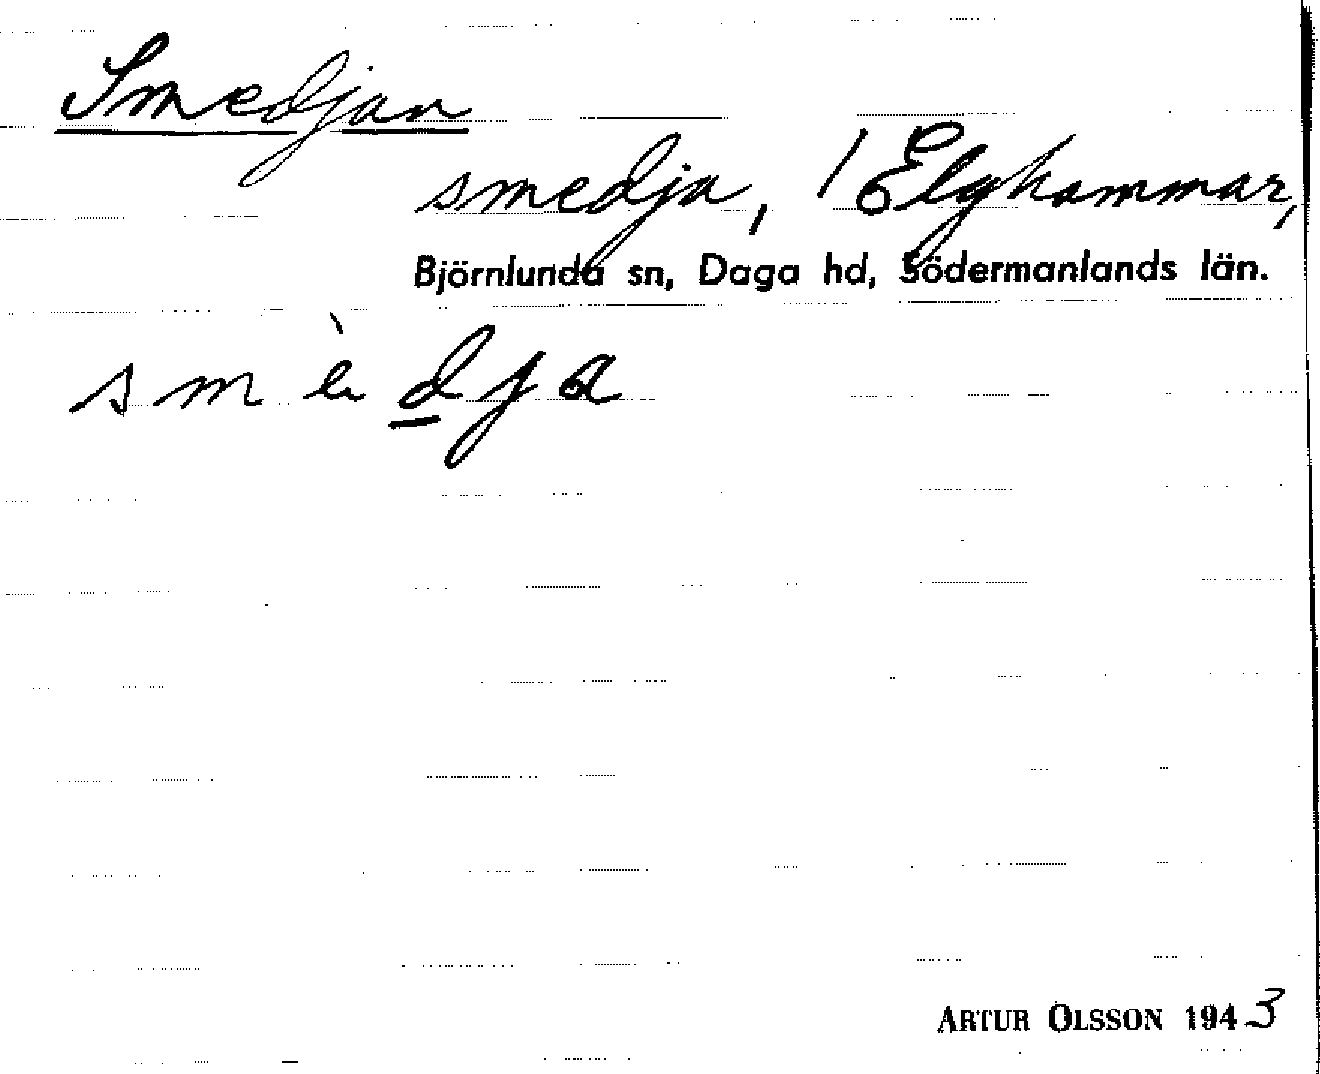 Smedjan
smedja, 1 Elghammar,
Björnlunda sn, Daga hd, Södermanlands län.
smèdja
ARTUR OLSSON 1943